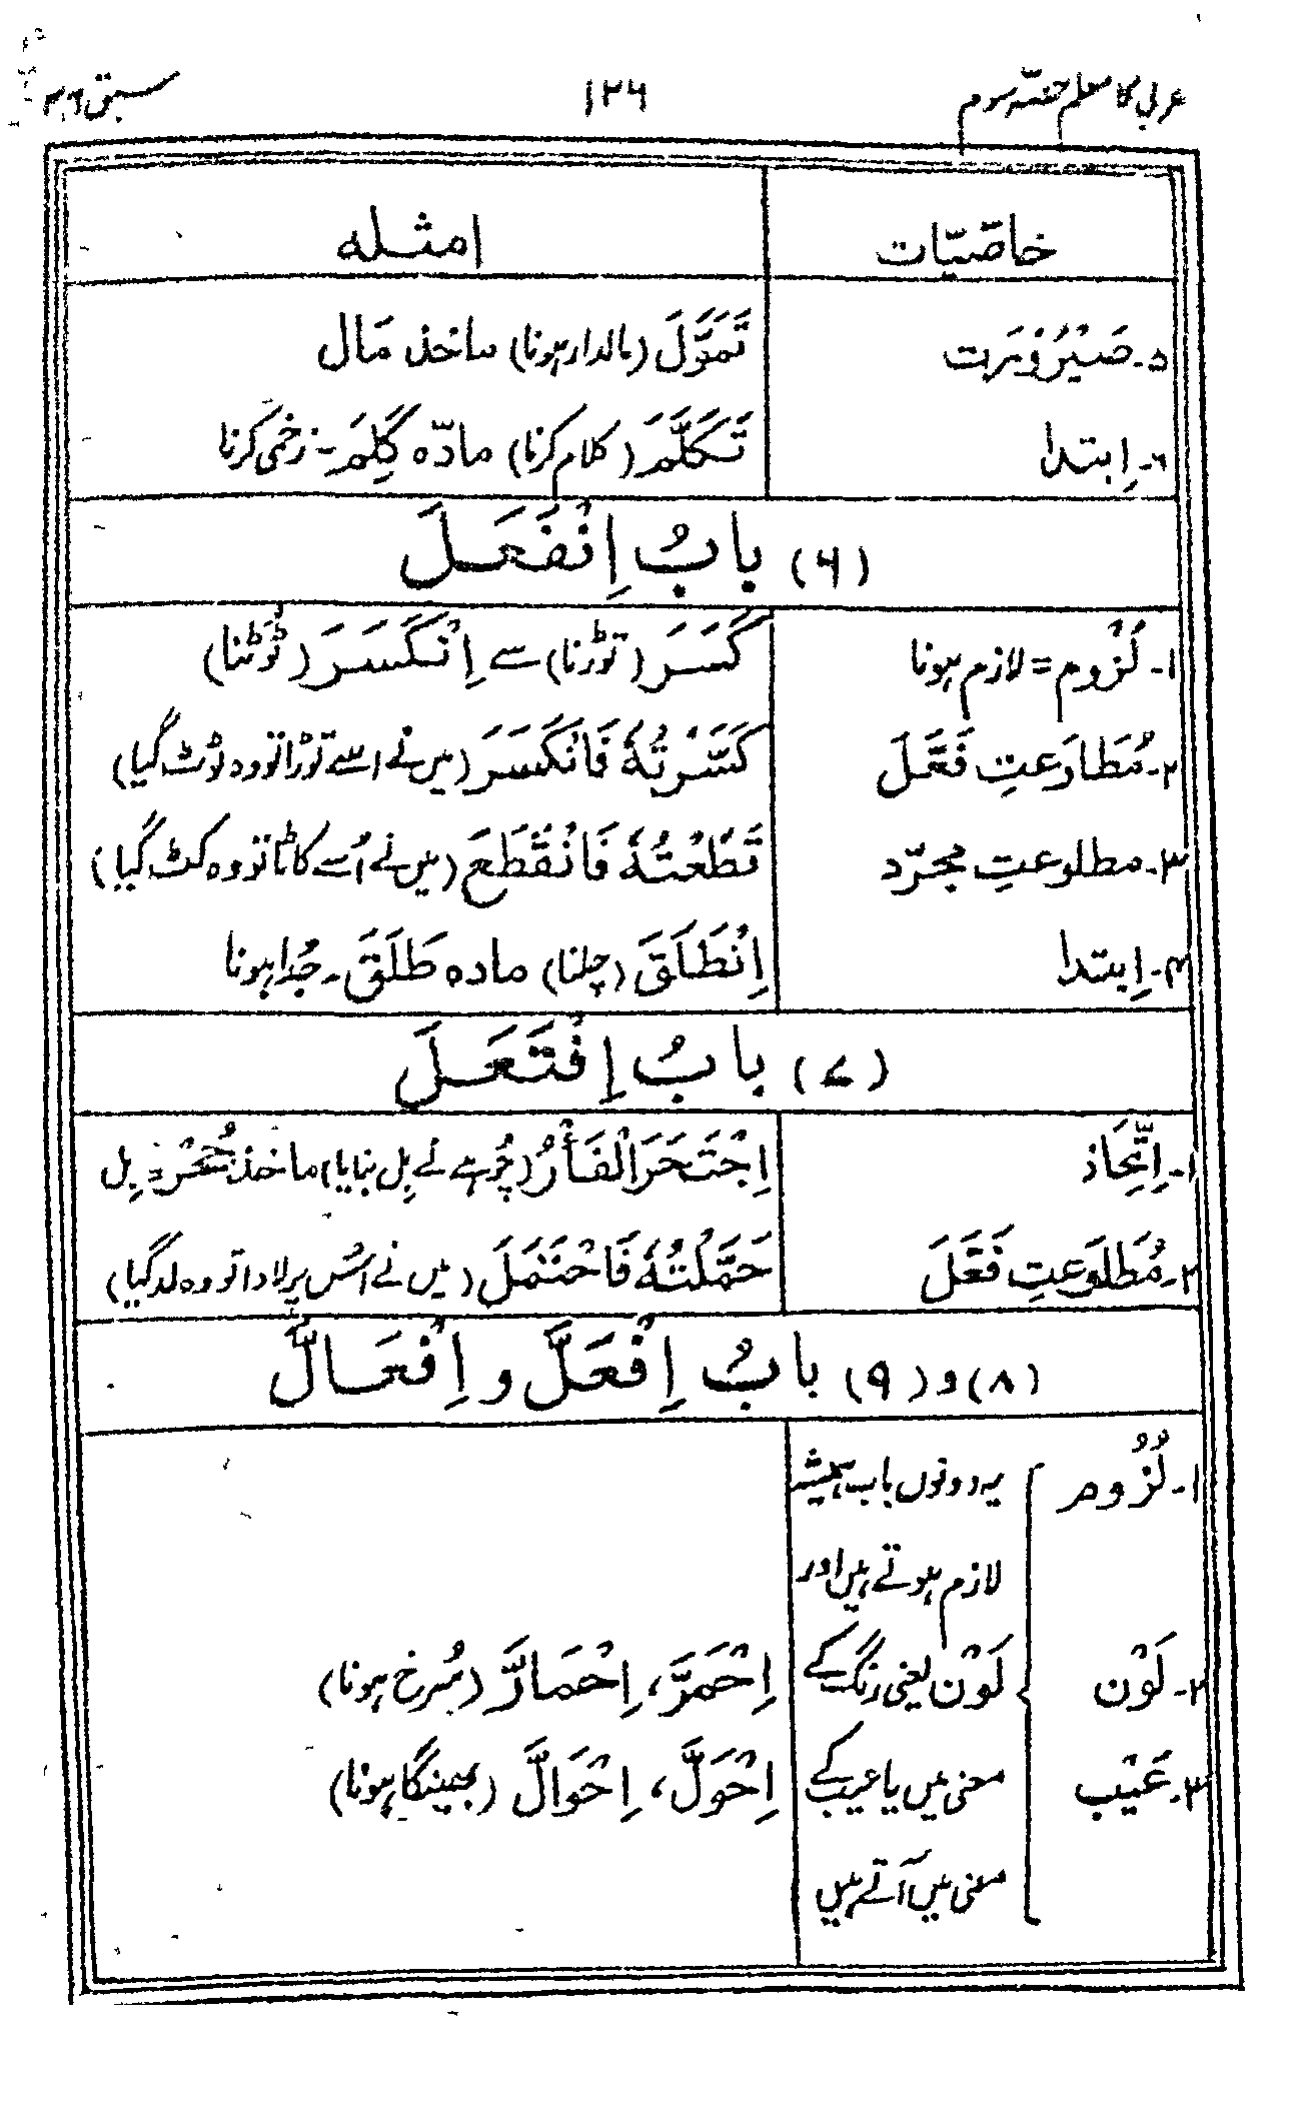 عربی کا معلم حصّہ سوم ١٢٦ سبق ٣٦
خاصّیّات امثلہ
٥۔ صَیْرُوْرَت تَمَوَّلَ (مالدار ہونا) ماخذ مَال
٦۔ اِبتدا تَکَلَّمَ (کلام کرنا) مادّہ کَلِمَ ۔ زخمی کرنا
(٦) بابُ اِنْفَعَلَ
١۔ لُزُوم = لازم ہونا کَسَرَ (توڑنا) سے اِنْکَسَرَ (ٹوٹنا)
٢۔ مُطَاوَعتِ فَعَّلَ کَسَّرْتُہٗ فَانْکَسَرَ (میں نے اسے توڑا تو وہ ٹوٹ گیا)
٣۔ مطاوعتِ مجرّد قَطَعْتُہٗ فَانْقَطَعَ (میں نے اُسے کاٹا تو وہ کٹ گیا)
٤۔ اِبتدا اِنْطَلَقَ (چلنا) مادہ طَلَقَ ۔ جُدا ہونا
(٧) بابُ اِفْتَعَلَ
١۔ اِتِّخَاذ اِجْتَحَرَ الْفَأْرُ (چُوہے نے بِل بنایا) ماخذ جُحْر = بِل
٢۔ مُطَاوَعتِ فَعَّلَ حَمَّلْتُہٗ فَاحْتَمَلَ (میں نے اُس پر لادا تو وہ لد گیا)
(٨) و (٩) بابُ اِفْعَلَّ و اِفْعَالَّ
١۔ لُزُوم یہ دونوں باب ہمیشہ
لازم ہوتے ہیں اور
٢۔ لَوْن لَوْن یعنی رنگ کے اِحْمَرَّ، اِحْمَارَّ (سُرخ ہونا)
٣۔ عَیْب معنی میں یا عیب کے اِحْوَلَّ، اِحْوَالَّ (بھینگا ہونا)
معنی میں آتے ہیں